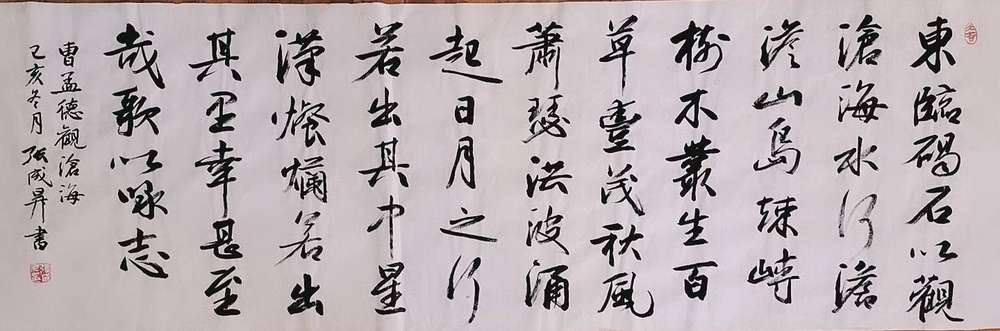 東臨碣石以觀
滄海水何澹
澹山島竦峙
樹木叢生百
草豐茂秋風
蕭瑟洪波涌
起日月之行
若出其中星
漢燦爛若出
其里幸甚至
哉歌以咏志
曹孟德觀滄海
己亥冬月 張成昇書